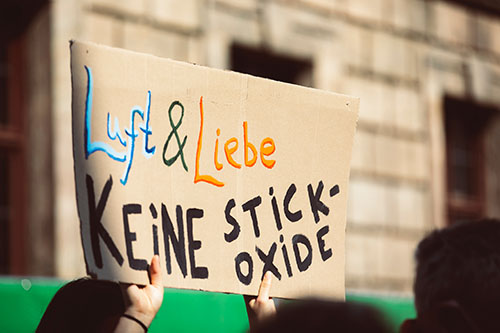 Luft & Liebe
KEiNE STiCK-
OXiDE